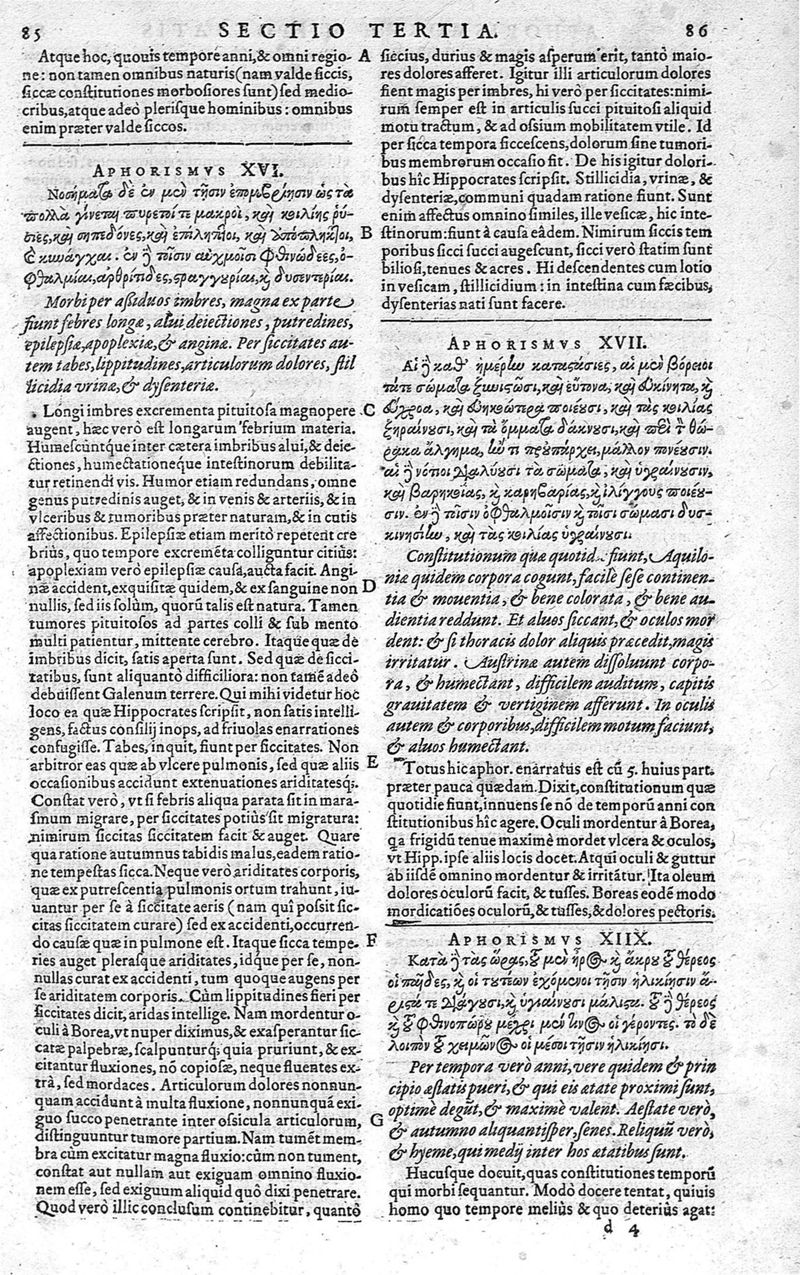 85 SECTIO TERTIA. 86
Atque hoc, quouis tempore anni, & omni regio-
ne: non tamen omnibus naturis (nam valde siccis,
siccæ constitutiones morbosiores sunt) sed medio-
cribus, atque adeò plerisque hominibus: omnibus
enim præter valde siccos.
APHORISMVS XVI.
Νοσήματα δὲ ἐν μὲν τῇσιν ἐπομβρίησιν ὡς τὰ
πολλὰ γίνεται πυρετοί τε μακροὶ, καὶ κοιλίης ῥύ-
σιες, καὶ σηπεδόνες, καὶ ἐπίληπτοι, καὶ ἀπόπληκτοι,
& κυνάγχαι. ἐν ᾗ τοῖσιν αὐχμοῖσι φθινώδεες, ὀ-
φθαλμίαι, ἀρθρίτιδες, στραγγουρίαι, καὶ δυσεντερίαι.
Morbi per assiduos imbres, magna ex parte
fiunt febres longæ, alui deiectiones, putredines,
epilepsiæ, apoplexiæ, & anginæ. Per siccitates au-
tem tabes, lippitudines, articulorum dolores, stil
licidia vrinæ, & dysenteriæ.
Longi imbres excrementa pituitosa magnopere
augent, hæc verò est longarum febrium materia.
Humescúntque inter cætera imbribus alui, & deie-
ctiones, humectationeque intestinorum debilita-
tur retinendi vis. Humor etiam redundans, omne
genus putredinis auget, & in venis & arteriis, & in
vlceribus & tumoribus præter naturam, & in cutis
affectionibus. Epilepsiæ etiam meritò repetent cre
brius, quo tempore excremēta colliguntur citiùs:
apoplexiam verò epilepsiæ causa, aucta facit. Angi-
næ accident, exquisitæ quidem, & ex sanguine non
nullis, sed iis solùm, quorū talis est natura. Tamen
tumores pituitosos ad partes colli & sub mento
multi patientur, mittente cerebro. Itaque quæ de
imbribus dicit, satis aperta sunt. Sed quæ de sicci-
tatibus, sunt aliquantò difficiliora: non tamē adeò
debuissent Galenum terrere. Qui mihi videtur hoc
loco ea quæ Hippocrates scripsit, non satis intelli-
gens, factus consilij inops, ad friuolas enarrationes
confugisse. Tabes, inquit, fiunt per siccitates. Non
arbitror eas quæ ab vlcere pulmonis, sed quæ aliis
occasionibus accidunt extenuationes ariditatesq;.
Constat verò, vt si febris aliqua parata sit in mara-
smum migrare, per siccitates potiùs sit migratura:
nimirum siccitas siccitatem facit & auget. Quare
qua ratione autumnus tabidis malus, eadem ratio-
ne tempestas sicca. Neque verò ariditates corporis,
quæ ex putrescentia pulmonis ortum trahunt, iu-
uantur per se à siccitate aeris (nam quî possit sic-
citas siccitatem curare) sed ex accidenti, occurren-
do causæ quæ in pulmone est. Itaque sicca tempe-
ries auget plerasque ariditates, idque per se, non-
nullas curat ex accidenti, tum quoque augens per
se ariditatem corporis. Cùm lippitudines fieri per
siccitates dicit, aridas intellige. Nam mordentur o-
culi à Borea, vt nuper diximus, & exasperantur sic-
catæ palpebræ, scalpunturq; quia pruriunt, & ex-
citantur fluxiones, nō copiosæ, neque fluentes ex-
trà, sed mordaces. Articulorum dolores nonnun-
quam accidunt à multa fluxione, nonnunquā exi-
guo succo penetrante inter ossicula articulorum,
distinguuntur tumore partium. Nam tumēt mem-
bra cùm excitatur magna fluxio: cùm non tument,
constat aut nullam aut exiguam omnino fluxio-
nem esse, sed exiguum aliquid quò dixi penetrare.
Quod verò illic conclusum continebitur, quantò
A
B
C
D
E
F
G
siccius, durius & magis asperum erit, tantò maio-
res dolores afferet. Igitur illi articulorum dolores
fient magis per imbres, hi verò per siccitates: nimi-
rum semper est in articulis succi pituitosi aliquid
motu tractum, & ad ossium mobilitatem vtile. Id
per sicca tempora siccescens, dolorum sine tumori-
bus membrorum occasio fit. De his igitur dolori-
bus hîc Hippocrates scripsit. Stillicidia, vrinæ, &
dysenteriæ, communi quadam ratione fiunt. Sunt
enim affectus omnino similes, ille vesicæ, hic inte-
stinorum: fiunt à causa eâdem. Nimirum siccis tem
poribus sicci succi augescunt, sicci verò statim sunt
biliosi, tenues & acres. Hi descendentes cum lotio
in vesicam, stillicidium: in intestina cum fæcibus,
dysenterias nati sunt facere.
APHORISMVS XVII.
Αἱ ᾗ καθ' ἡμέρην καταστάσιες, αἱ μὲν βόρειοι
τά τε σώματα ξυνιστᾶσι, καὶ εὔτονα, καὶ εὐκίνητα, καὶ
εὔχροα, καὶ εὐηκοώτερα ποιέουσι, καὶ τὰς κοιλίας
ξηραίνουσι, καὶ τὰ ὄμματα δάκνουσι, καὶ περὶ τ̀ θώ-
ρακα ἄλγημα, ἤν τι προϋπάρχει, μᾶλλον πονέουσιν.
αἱ ᾗ νότιοι διαλύουσι τὰ σώματα, καὶ ὑγραίνουσιν,
καὶ βαρηκοΐας, καὶ καρηβαρίας, καὶ ἰλίγγους ποιέου-
σιν. ἐν ᾗ τοῖσιν ὀφθαλμοῖσιν καὶ τοῖσι σώμασι δυσ-
κινησίην, καὶ τὰς κοιλίας ὑγραίνουσι.
Constitutionum quæ quotid. fiunt, Aquilo-
niæ quidem corpora cogunt, facile sese continen-
tia & mouentia, & bene colorata, & bene au-
dientia reddunt. Et aluos siccant, & oculos mor
dent: & si thoracis dolor aliquis præcedit, magis
irritatur. Austrinæ autem dissoluunt corpo-
ra, & humectant, difficilem auditum, capitis
grauitatem & vertiginem afferunt. In oculis
autem & corporibus, difficilem motum faciunt,
& aluos humectant.
Totus hic aphor. enarratus est cū 5. huius part.
præter pauca quædam. Dixit, constitutionum quæ
quotidie fiunt, innuens se nō de temporū anni con
stitutionibus hîc agere. Oculi mordentur à Borea,
qa frigidū tenue maximè mordet vlcera & oculos,
vt Hipp. ipse aliis locis docet. Atqui oculi & guttur
ab iisdē omnino mordentur & irritātur. Ita oleum
dolores oculorū facit, & tusses. Boreas eodē modo
mordicatiōes oculorū, & tusses, & dolores pectoris.
APHORISMVS XIIX.
Κατὰ ᾗ τὰς ὥρας, τοῦ μὲν ἦρος καὶ ἄκρου τοῦ θέρεος
οἱ παῖδες, καὶ οἱ τουτέων ἐχόμενοι τῇσιν ἡλικίῃσιν ἄ-
ριστά τε διάγουσι, καὶ ὑγιαίνουσι μάλιστα. τοῦ ᾗ θέρεος
καὶ τοῦ φθινοπώρου μέχρι μέν τινος οἱ γέροντες. τὸ δὲ
λοιπὸν τοῦ χειμῶνος οἱ μέσοι τῇσιν ἡλικίῃσι.
Per tempora verò anni, vere quidem & prin
cipio æstatis pueri, & qui eis ætate proximi sunt,
optimè degūt, & maximè valent. Aestate verò,
& autumno aliquantisper, senes. Reliquū verò,
& hyeme, qui medij inter hos ætatibus sunt.
Hucusque docuit, quas constitutiones temporū
qui morbi sequantur. Modò docere tentat, quiuis
homo quo tempore melius & quo deterius agat:
d 4